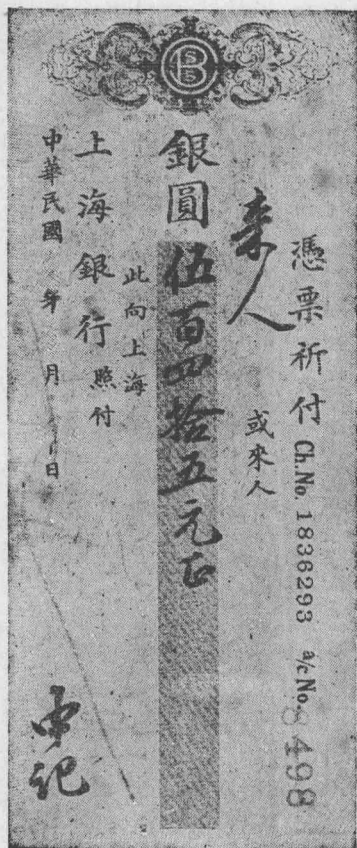 憑票祈付 Ch.No. 1836293 a/c No. 8498
來人
或來人
銀圓伍百四拾五元正
此向上海
上海銀行照付
中華民國 年 月 日
申記